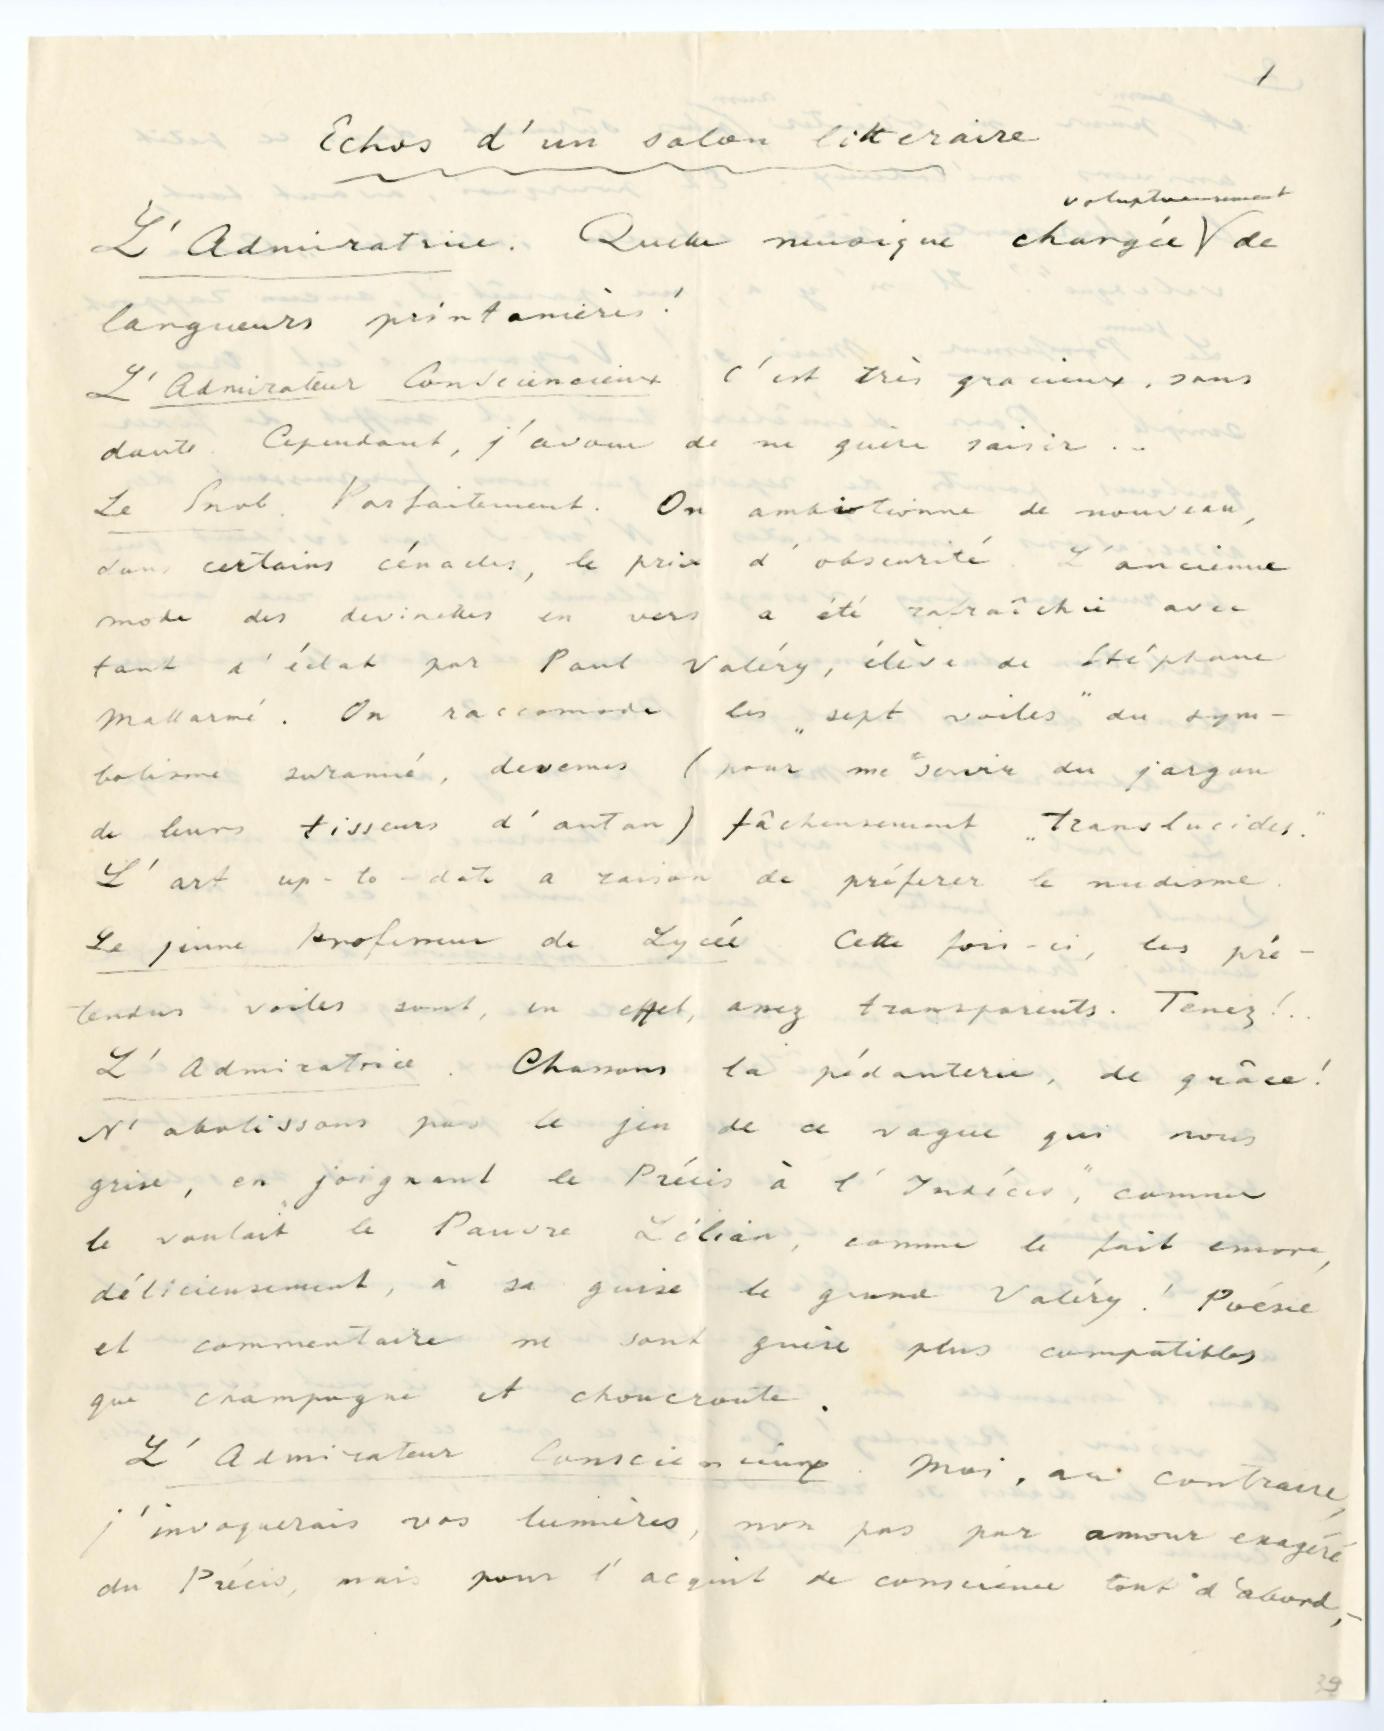 1
Echos d'un salon littéraire
voluptueusement
L'Admiratrice. Quelle musique chargée √ de
langueurs printanières!
L'Admirateur Consciencieux C'est très gracieux, sans
doute. Cependant, j'avoue de ne guère saisir...
Le Snob. Parfaitement. On ambitionne de nouveau,
dans certains cénacles, le prix d'obscurité. L'ancienne
mode des devinettes en vers a été rafraîchie avec
tant d'éclat par Paul Valéry, élève de Stéphane
Mallarmé. On raccomode les „sept voiles" du sym-
bolisme suranné, devenus (pour me servir du jargon
de leurs tisseurs d'antan) fâcheusement „translucides."
L'art up-to-date a raison de préferer le nudisme.
Le jeune Professeur de Lycée Cette fois-ci, les pré-
tendus voiles sont, en effet, assez transparents. Tenez!..
L'Admiratrice. Chassons la pédanterie, de grâce!
N'abolissons pas le jeu de ce vague qui nous
grise, en „joignant le Précis à l'Indécis", comme
le voulait le Pauvre Lélian, comme le fait encore,
délicieusement, à sa guise le grand Valéry! Poésie
et commentaire ne sont guère plus compatibles
que champagne et choucroute.
L'Admirateur Consciencieux. Moi, au contraire,
j'invoquerais vos lumières, non pas par amour exagéré
du Précis, mais pour l'acquit de conscience tout d'abord,-
39